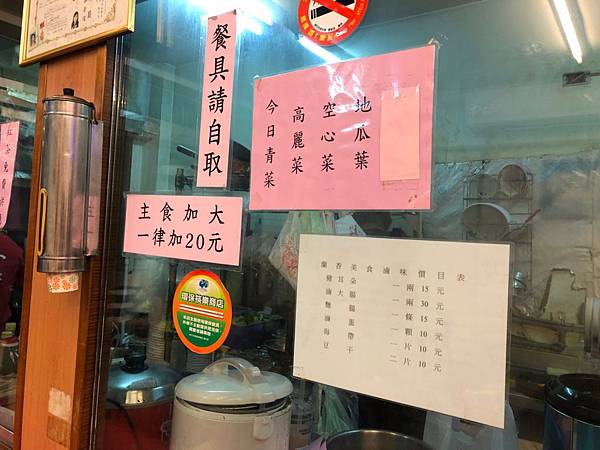 餐具請自取
今日青菜
高麗菜
空心菜
地瓜葉
主食加大
一律加20元
環保筷樂商店
蘭香美食滷味價目表
豬耳朵 一兩 15元
滷大腸 一兩 30元
麵腸 一條 15元
滷蛋 一顆 10元
海帶 一片 10元
豆干 二片 10元
紅茶免費